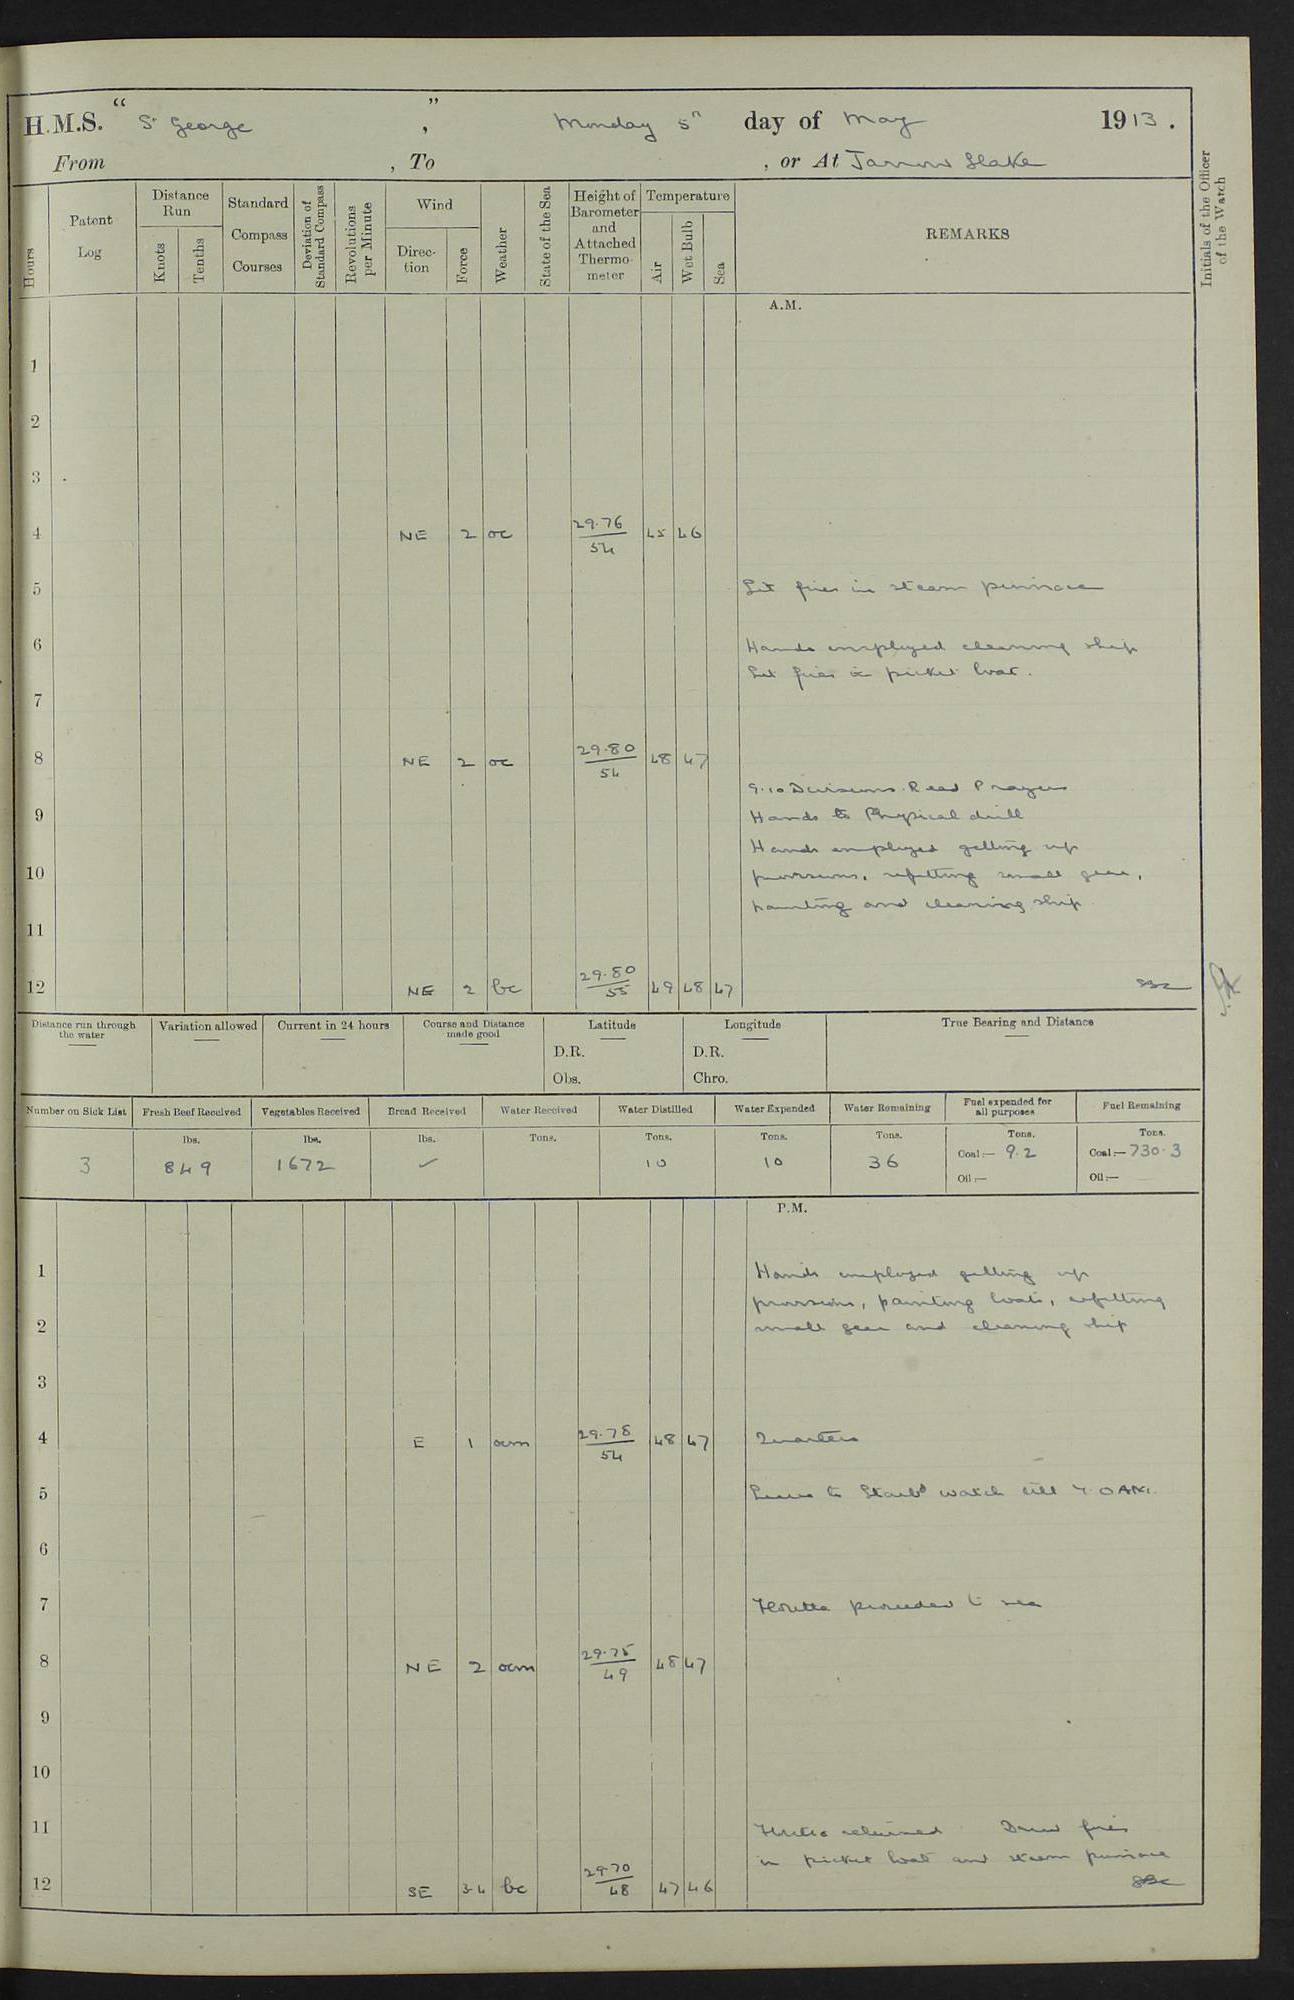 H.M.S. "St George", Monday 5th day of May 1913.
From , To , or At Jarrow Slake
Hours
Patent Log
Distance Run
Knots
Tenths
Standard Compass Courses
Deviation of Standard Compass
Revolutions per Minute
Wind
Direction
Force
Weather
State of the Sea
Height of Barometer and Attached Thermometer
Temperature
Air
Wet Bulb
Sea
REMARKS
Initials of the Officer of the Watch
A.M.
1
2
3
4 NE 2 oc 29.76/54 45 46
5 Lit fires in steam pinnace
6 Hands employed cleaning ship
Lit fires in picket boat.
7
8 NE 2 oc 29.80/54 48 47
9.10 Divisions. Read Prayers
9 Hands to Physical drill
Hands employed getting up
10 provisions, refitting small gear,
painting and cleaning ship
11
12 NE 2 bc 29.80/55 49 48 47
Distance run through the water
Variation allowed
Current in 24 hours
Course and Distance made good
Latitude
D.R.
Obs.
Longitude
D.R.
Chro.
True Bearing and Distance
Number on Sick List
3
Fresh Beef Received
lbs.
849
Vegetables Received
lbs.
1672
Bread Received
lbs.
✓
Water Received
Tons.
Water Distilled
Tons.
10
Water Expended
Tons.
10
Water Remaining
Tons.
36
Fuel expended for all purposes
Tons.
Coal:— 9.2
Oil:—
Fuel Remaining
Tons.
Coal:— 730.3
Oil:—
P.M.
1 Hands employed getting up
provisions, painting boats, refitting
2 small gear and cleaning ship
3
4 E 1 ocm 29.78/54 48 47 Quarters
5 Leave to Starbd watch till 7.0 AM.
6
7 proceeded to sea
8 NE 2 ocm 29.75/49 48 47
9
10
11 returned Drew fires
in picket boat and steam pinnace
12 SE 3-4 bc 29.70/48 47 46